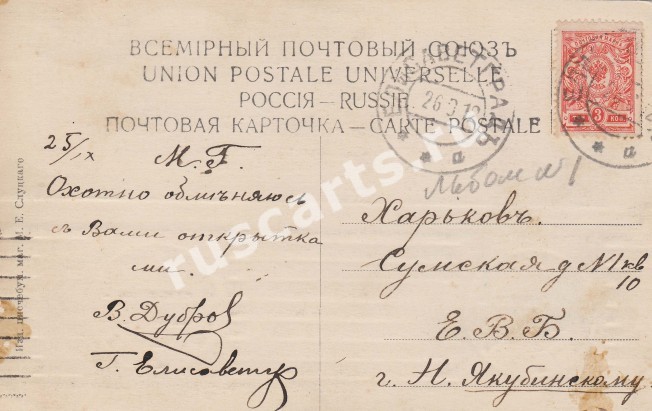 ВСЕМІРНЫЙ ПОЧТОВЫЙ СОЮЗЪ
UNION POSTALE UNIVERSELLE
РОССІЯ — RUSSIE
ПОЧТОВАЯ КАРТОЧКА — CARTE POSTALE
ЕЛИСАВЕТГРАДЪ
26 9 12
3 КОП
25/IX
М. Г.
Охотно обмѣняюсь
съ Вами открытка
ми.
В. Дубров
Г. Елисаветгр
Альбом №1
Харьковъ.
Сумская д №1 кв
10
Е. В. Б.
г. Н. Якубинскому
Изд. писчебум. маг. М. Е. Слуцкаго
ruscarts.ru